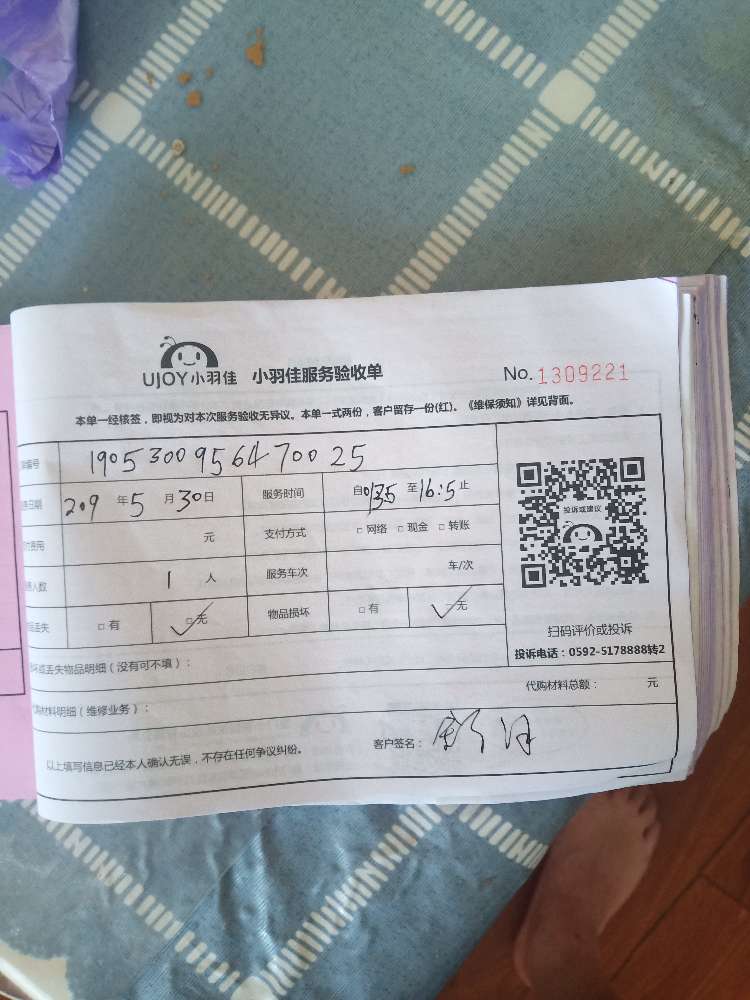 UJOY小羽佳 小羽佳服务验收单 No. 1309221
本单一经核签，即视为对本次服务验收无异议。本单一式两份，客户留存一份(红)。《维保须知》详见背面。
编号 1905300956470025
日期 209 年 5 月 30 日 服务时间 自 至 16:5 止
费用 元 支付方式 □ 网络 □ 现金 □ 转账
人数 1 人 服务车次 车/次
丢失 □ 有 □ 无 物品损坏 □ 有 无
投诉或建议
扫码评价或投诉
投诉电话：0592-5178888转2
坏或丢失物品明细（没有可不填）：
代购材料明细（维修业务）： 代购材料总额： 元
以上填写信息已经本人确认无误，不存在任何争议纠纷。 客户签名：